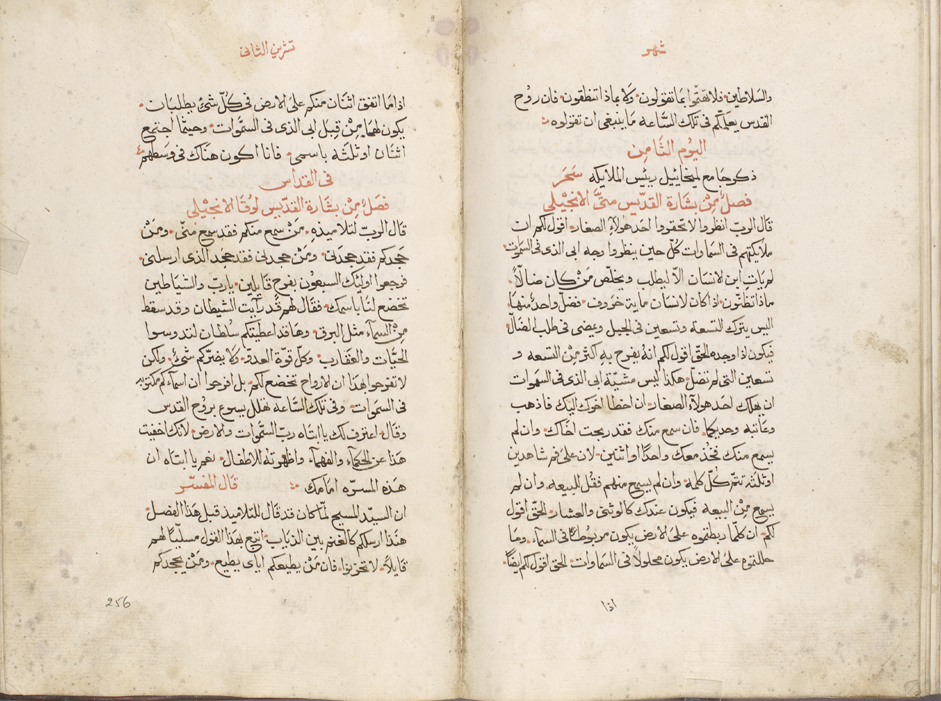 شهر
والسلاطين فلا تهتموا بما تقولون ولا بماذا تنطقون فان روح
القدس يعلمكم في تلك الساعه ما ينبغي ان تقولوه
اليوم الثامن
ذكر جامع ميخاييل رييس الملايكه سحر
فصل من بشارة القديس متى الانجيلي
قال الرب انظروا لا تحقروا احد هولاء الصغار اقول لكم ان
ملايكتهم في السماوات كل حين ينظروا وجه ابي الذي في السموات
لم يات ابن الانسان الا ليطلب ويخلص من كان ضالاً
ماذا تظنون اذا كان لانسان ماية خروف فضل واحد منها
اليس يترك التسعه وتسعين في الجبل وعضى في طلب الضال
فيكون اذا وجده الحق اقول لكم انه يفرح به اكثر من التسعه و
تسعين التي لم تضل هكذا ليس مشية ابي الذي في السموات
ان يهلك احد هولاء الصغار ان اخطا اخوك اليك فاذهب
وعاتبه وحديكما فان سمع منك فقد ربحت اخاك وان لم
يسمع منك فخذ معك واحدا او اثنين لان على فم شاهدين
او ثلثه تتم كل كلمه وان لم يسمع منهم فقل للبيعه وان لم
يسمع من البيعه فيكون عندك كالوثني والعشار الحق اقول
لكم ان كلما ربطتموه على الارض يكون مربوطاً في السماء وما
حللتموه على الارض يكون محلولاً في السماوات الحق اقول لكم ايضاً
اذا
تشرين الثاني
اذا ما اتفق اثنان منكم على الارض في كل شي يطلبان
يكون لهما من قبل ابي الذي في السموات وحيثما اجتمع
اثنان او ثلثه باسمي فانا اكون هناك في وسطهم
في القداس
فصل من بشارة القديس لوقا الانجيلي
قال الرب لتلاميذه من سمع منكم فقد سمع مني ومن
جحدكم فقد جحدني ومن جحدني فقد جحد الذي ارسلني
فرجعوا اوليك السبعون بفرح قايلين يا رب والشياطين
تخضع لنا باسمك فقال لهم قد رايت الشيطان وقد سقط
من السماء مثل البرق وها قد اعطيتكم سلطان لتدوسوا
الحيات والعقارب وكل قوة العدو ولا يضركم شي ولكن
لا تفرحوا بهذا ان الارواح تخضع لكم بل افرحوا ان اسماءكم مكتوبه
في السموات وفي تلك الساعه تهلل يسوع بروح القدس
وقال اعترف لك يا ابتاه رب السموات والارض لانك اخفيت
هذا عن الحكماء والفهماء واظهرته للاطفال نعم يا ابتاه ان
هذه المسره امامك قال المفسر
ان السيد المسيح لما كان قد قال للتلاميذ قبل هذا الفصل
هنذا ارسلكم كالغنم بين الذياب اتبع بهذا القول مسلياً لهم
قايلاً لا تحزنوا فان من يطيعكم اياي يطيع ومن يجحدكم
256